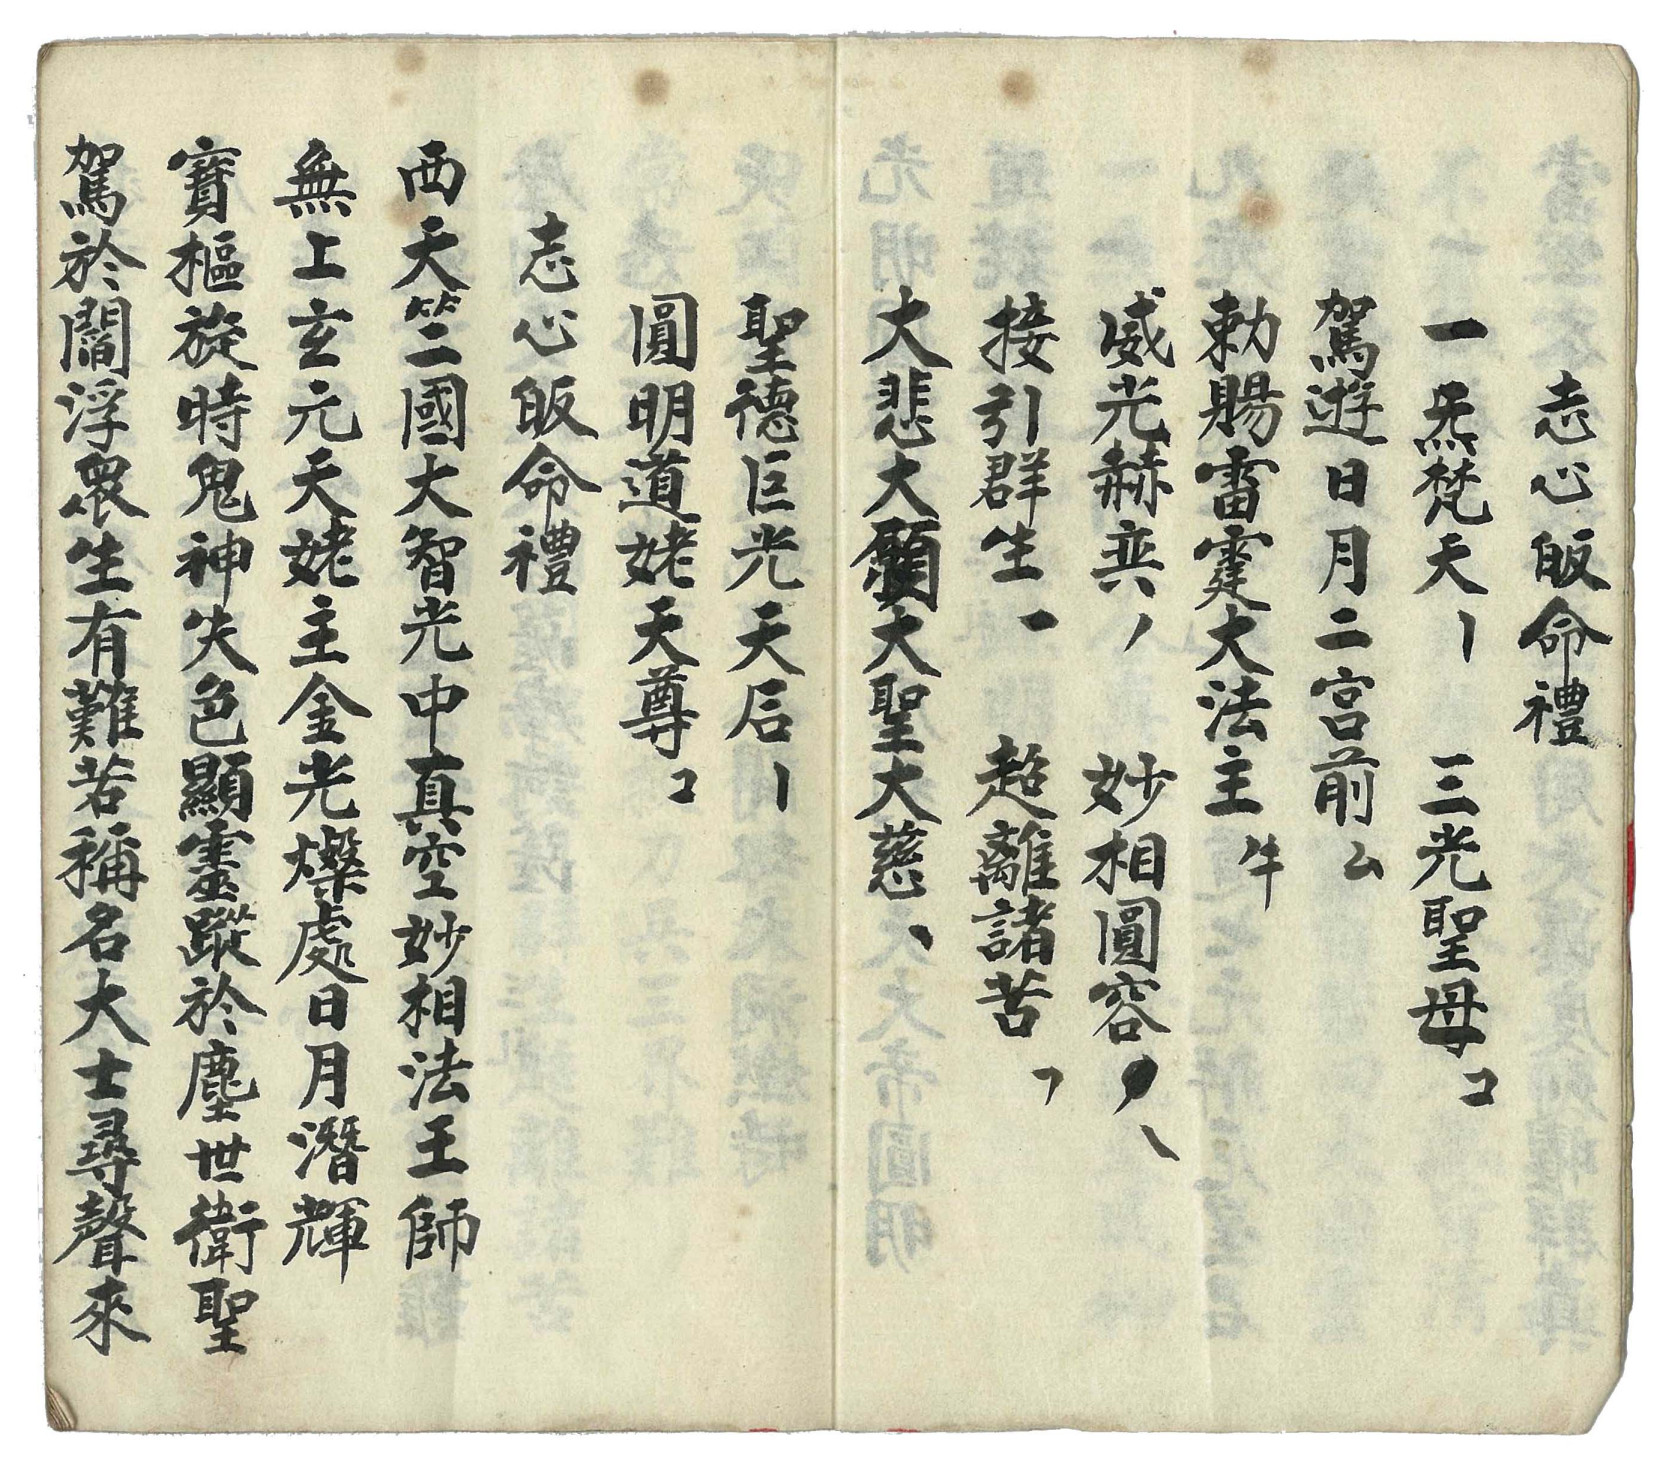 志心皈命禮
一炁梵天 三光聖母
駕遊日月二宮前
勅賜雷霆大法主
威光赫奕 妙相圓容
接引群生 超離諸苦
大悲大願大聖大慈
聖德巨光天后
圓明道姥天尊
志心皈命禮
西天竺國大智光中真空妙相法王師
無上玄元天姥主金光燦處日月潛輝
寶樞旋時鬼神失色顯靈蹤於塵世衛聖
駕於閻浮眾生有難若稱名大士尋聲來